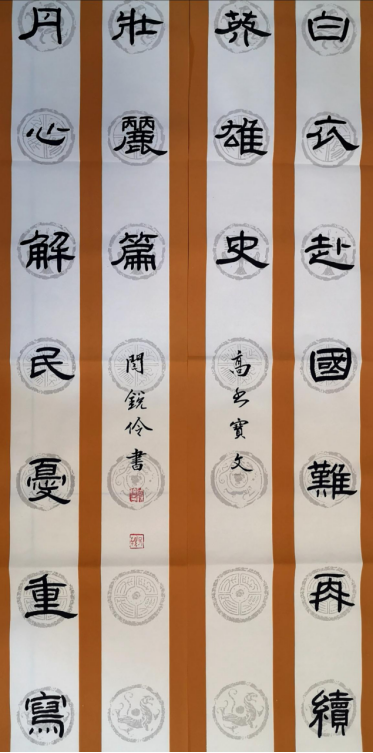 白衣赴國難再續
英雄史
高寶文
丹心解民憂重寫
壯麗篇
閆銳伶書